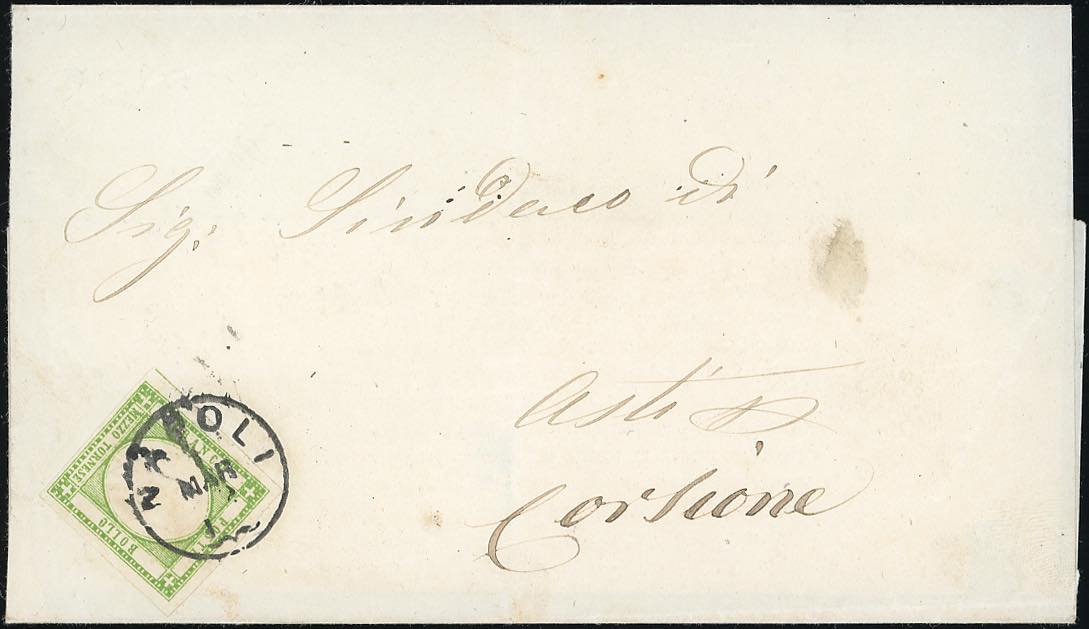 Sig: Sindaco di
Asti
Corsione
NAPOLI
MAR
1
MEZZO TORNESE
BOLLO